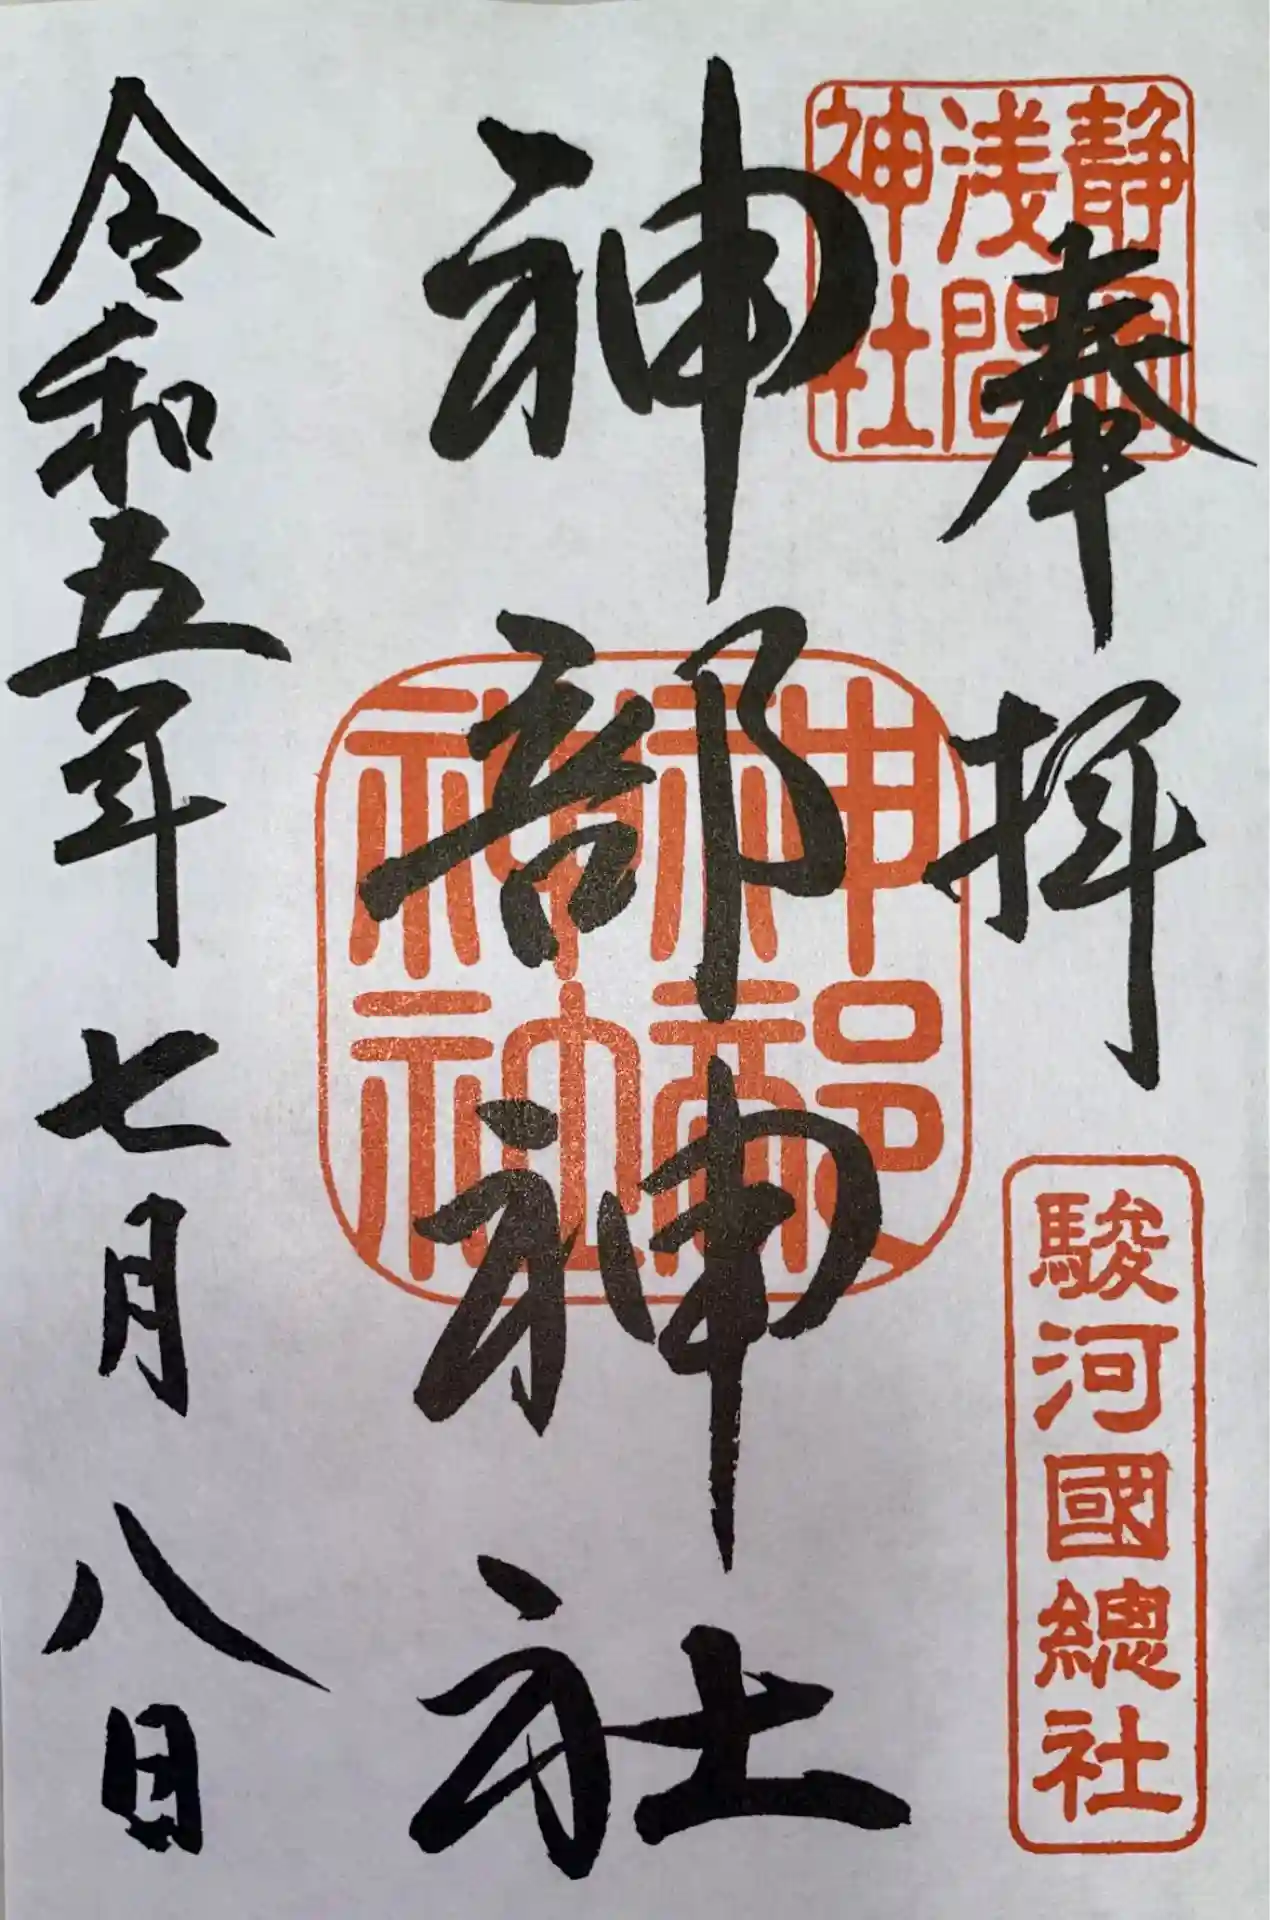 奉拝
静岡
浅間
神社
駿河國總社
神部神社
神部
神社
令和五年七月八日